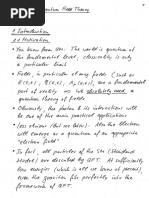 Quantum Field Theory
1 Introduction
1.1 Motivation
• You know from QM: The world is quantum at
the fundamental level, classicality is only
a particular limit
• Fields, in particular of any fields (such as
E(x,t), B(x,t), φ(x,t), are a fundamental
part of reality ⇒ we absolutely need a
quantum theory of fields.
• Obviously, the photon & its interactions will
be one of the main applications, but ...
• less obvious (but see below): Also the electron
will emerge as a quantum of an appropriate
"electron field"
• In fact, all particles of the SM (Standard
Model) are described by QFT. At sufficiently
low energies (which is all we know at present),
even the graviton fits perfectly into the
framework of QFT.